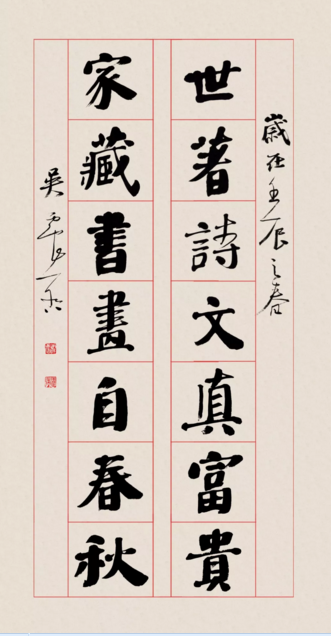 歲在壬辰之春
世著詩文真富貴
家藏書畫自春秋
吳